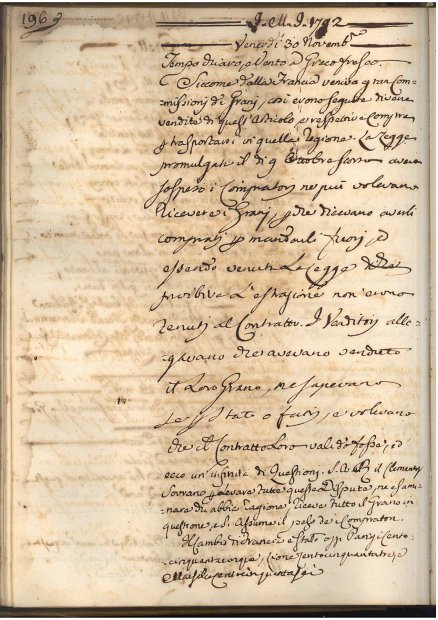 196
J. M. J. 1792
Venerdì 30 Novemb.
Tempo chiaro, e Vento a Greco fresco.
Siccome dalla Francia veniva gran Com-
missioni di Grani, così erono seguite diverse
vendite di quest'Articolo, e respettive Compre
p trasportarsi in quella Regione. La Legge
promulgata il dì 9 Ottobre scorso aveva
sospeso i Compratori ne più volevano
Ricevere i Grani, p che dicevano averli
comprati p mandarli fuori, ed
essendo venuta La Legge che
proibiva L'estrazione non erono
tenuti al Contratto. I Venditori alle-
gavano che avevano venduto
il Loro Grano, ne sapevano
se p Stato o fuori, e volevano
che il Contratto Loro valido fosse, ed
ecco un'infinità di Questioni. S. A. R. il Clementis
Sovrano p levare tutte queste Dispute, ne esami-
nare chi abbia Ragione riceve tutto il Grano in
questione, e si Assume il peso de' Compratori.
Il Cambio di Francia è stato oggi Parigi Cento-
cinquantacinque, Lione centocinquantatre, e
Marsilia centocinquantasei